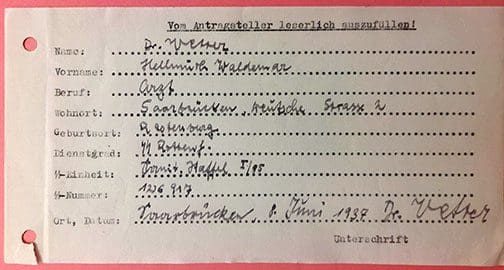 Vom Antragsteller leserlich auszufüllen!
Name: Dr. Vetter
Vorname: Hellmuth Waldemar
Beruf: Arzt
Wohnort: Saarbrücken, Strasse 2
Geburtsort:
Dienstgrad: ᛋᛋ Rottenf.
ᛋᛋ-Einheit: Sanit. Staffel I/85
ᛋᛋ-Nummer: 126 917
Ort, Datum: Saarbrücken 8. Juni 1937 Dr. Vetter
Unterschrift